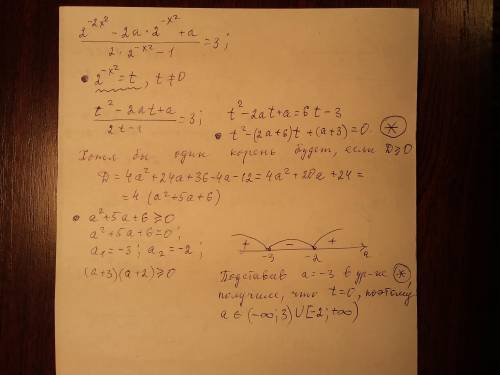 (2^(-2x²) - 2a·2^(-x²) + a) / (2·2^(-x²) - 1) = 3;
• 2^(-x²) = t, t ≠ 0
(t² - 2at + a) / (2t - 1) = 3;
t² - 2at + a = 6t - 3
• t² - (2a+6)t + (a+3) = 0. (*)
Хотел бы один корень будет, если D ⩾ 0
D = 4a² + 24a + 36 - 4a - 12 = 4a² + 20a + 24 =
= 4 (a² + 5a + 6)
• a² + 5a + 6 ⩾ 0
a² + 5a + 6 = 0;
a₁ = -3; a₂ = -2;
(a+3)(a+2) ⩾ 0
+ - +
-3 -2 a
Подставив a = -3 в ур-ие (*),
получим, что t = 0, поэтому
a ∈ (-∞; 3) ∪ [-2; +∞)